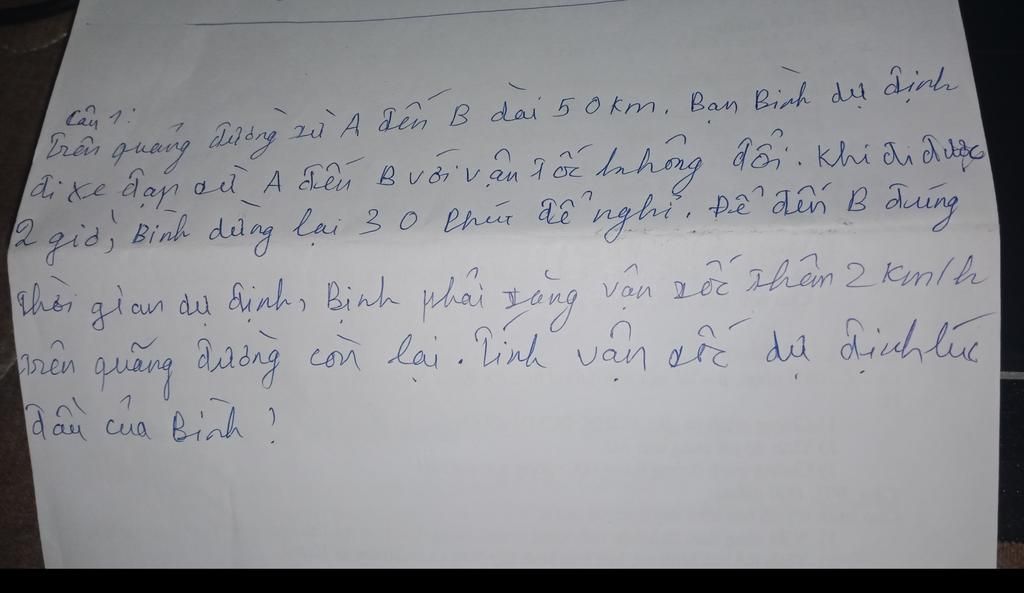 Câu 1:
Trên quãng đường từ A đến B dài 50km. Bạn Bình dự định
đi xe đạp từ A đến B với vận tốc không đổi. Khi đi được
2 giờ, Bình dừng lại 30 phút để nghỉ. Để đến B đúng
thời gian dự định, Bình phải tăng vận tốc thêm 2 km/h
trên quãng đường còn lại. Tính vận tốc dự định lúc
đầu của Bình?